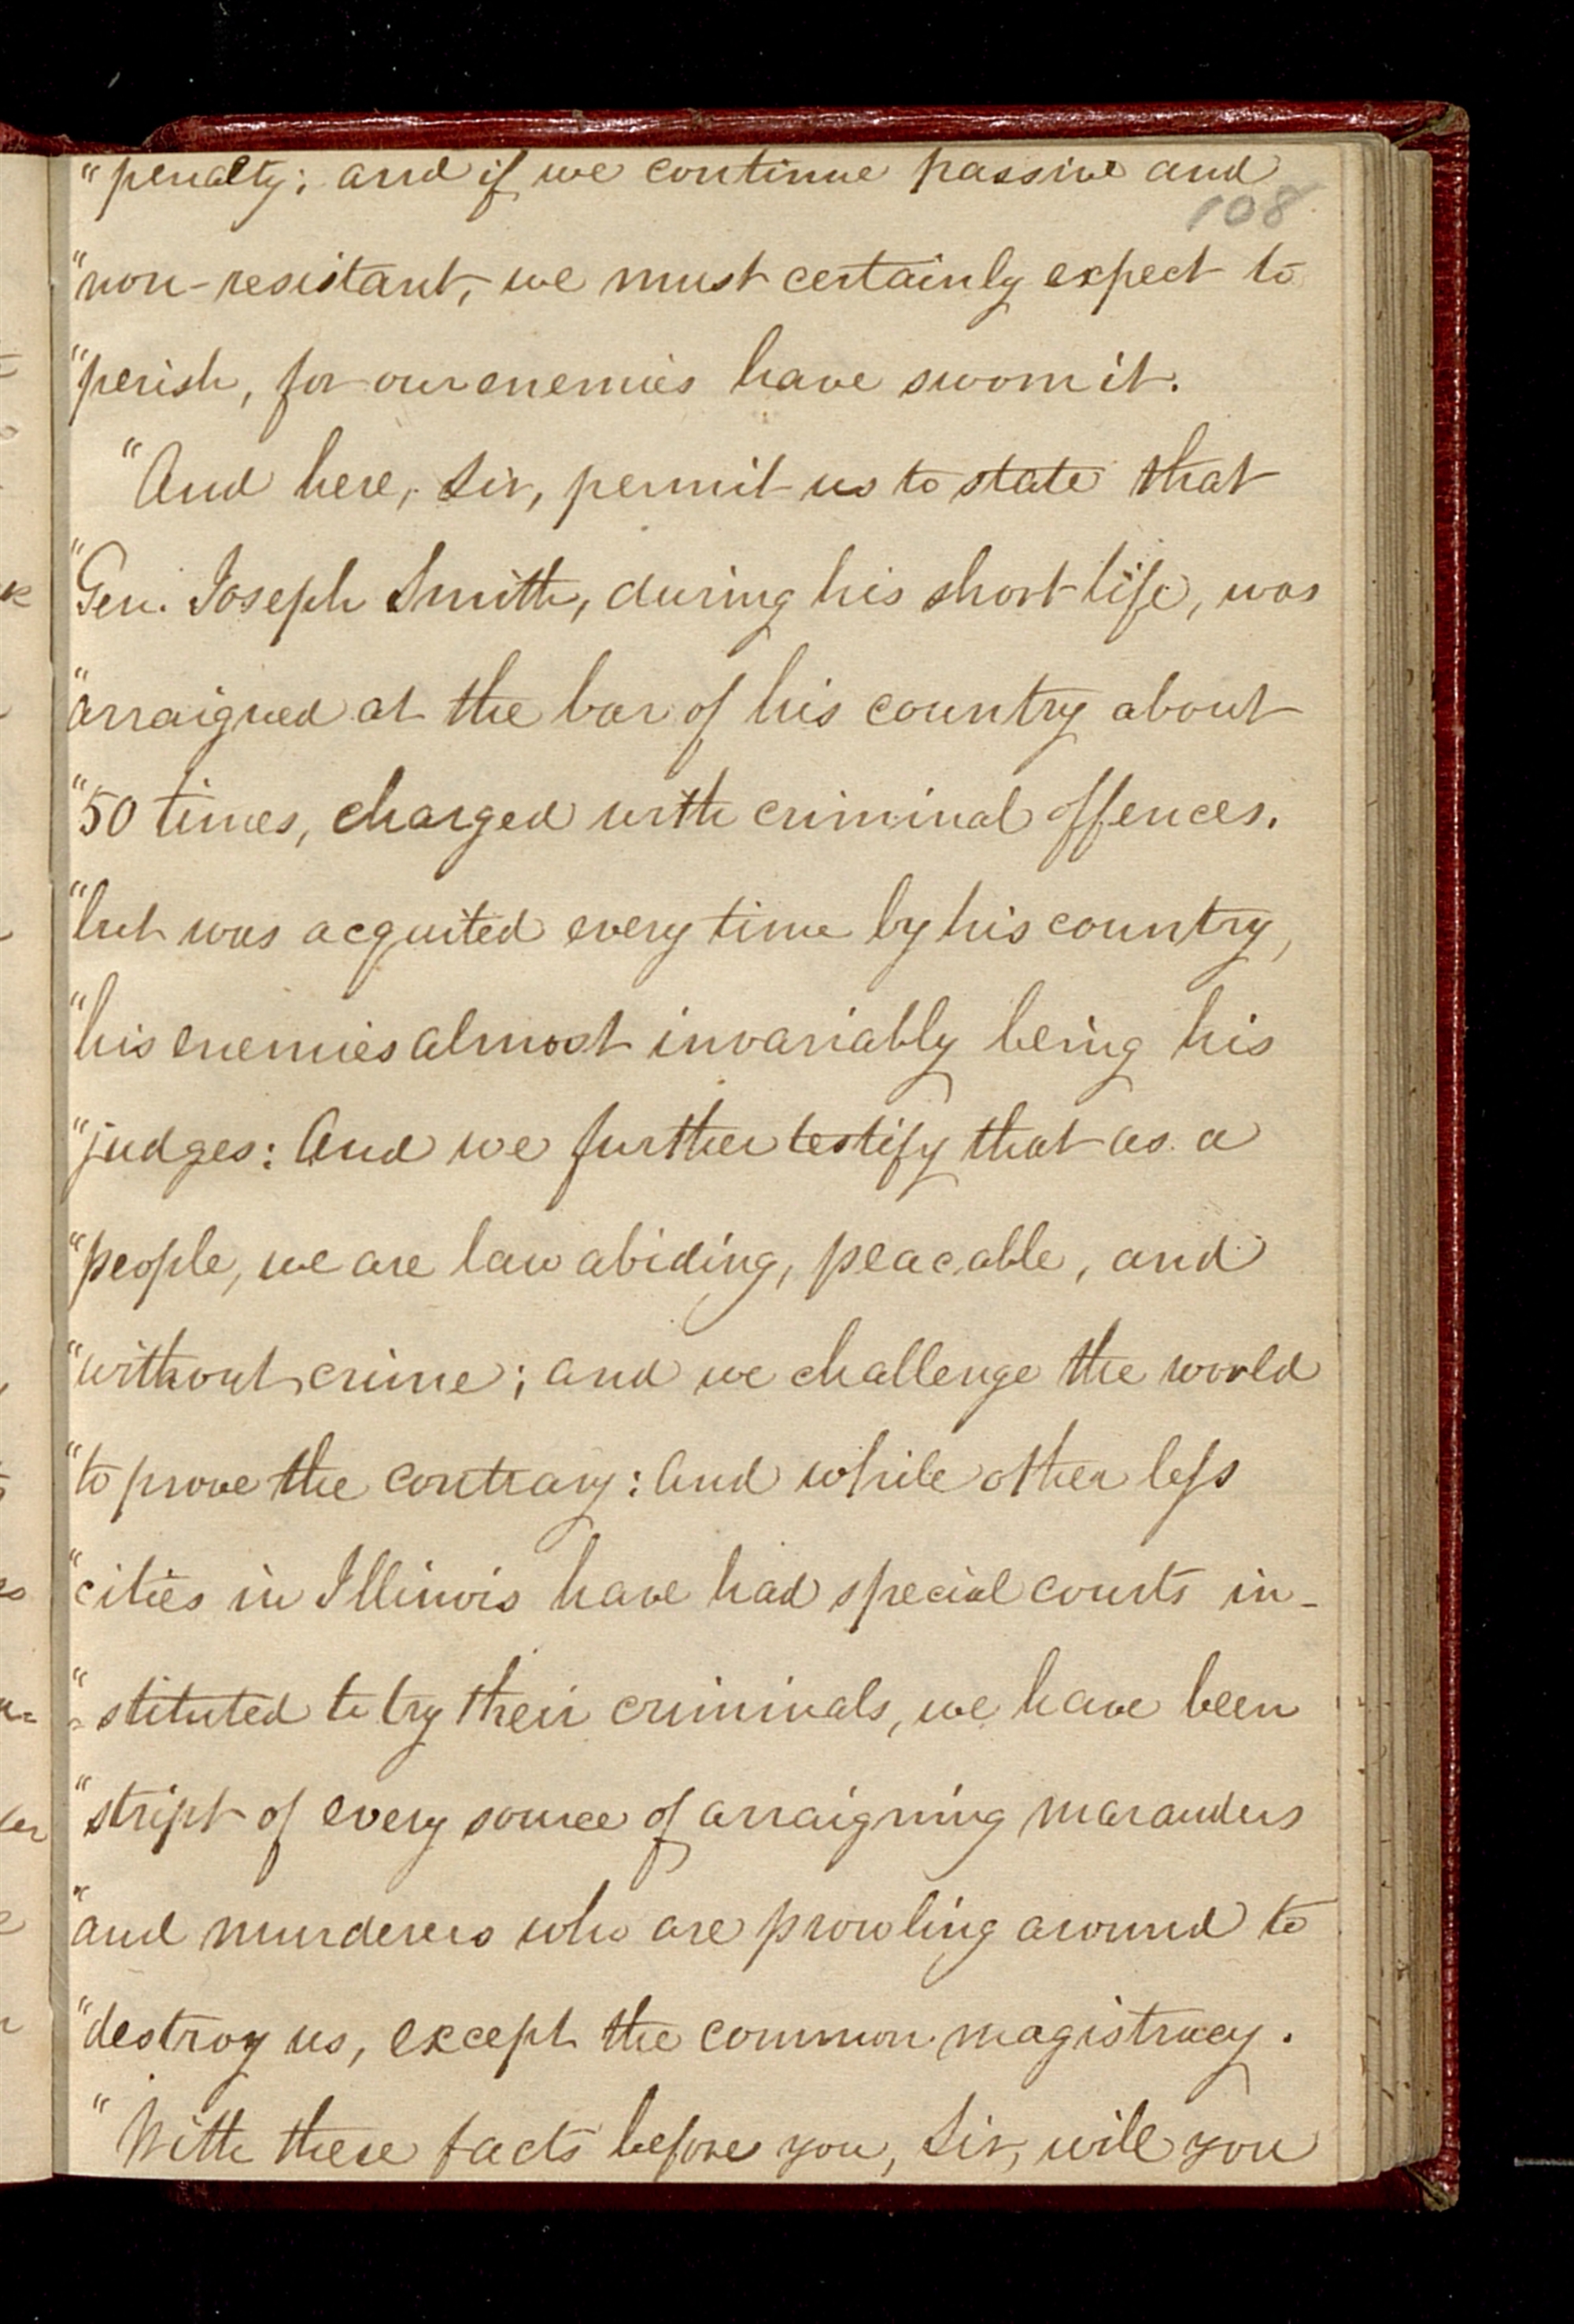 "penalty; and if we continue passive and
108
"non-resistant, we must certainly expect to
"perish, for our enemies have sworn it.
"And here, Sir, permit us to state that
"Gen. Joseph Smith, during his short life, was
"arraigned at the bar of his country about
"50 times, charged with criminal offences.
"but was acquited every time by his country,
"his enemies almost invariably being his
"judges: And we further testify that as a
"people, we are law abiding, peacable, and
"without crime; and we challenge the world
"to prove the contrary: And while other less
"cities in Illinois have had special courts in-
"=stituted to try their criminals, we have been
"stript of every source of arraigning marauders
"and murderers who are prowling around to
"destroy us, except the common magistracy.
"With these facts before you, Sir, will you